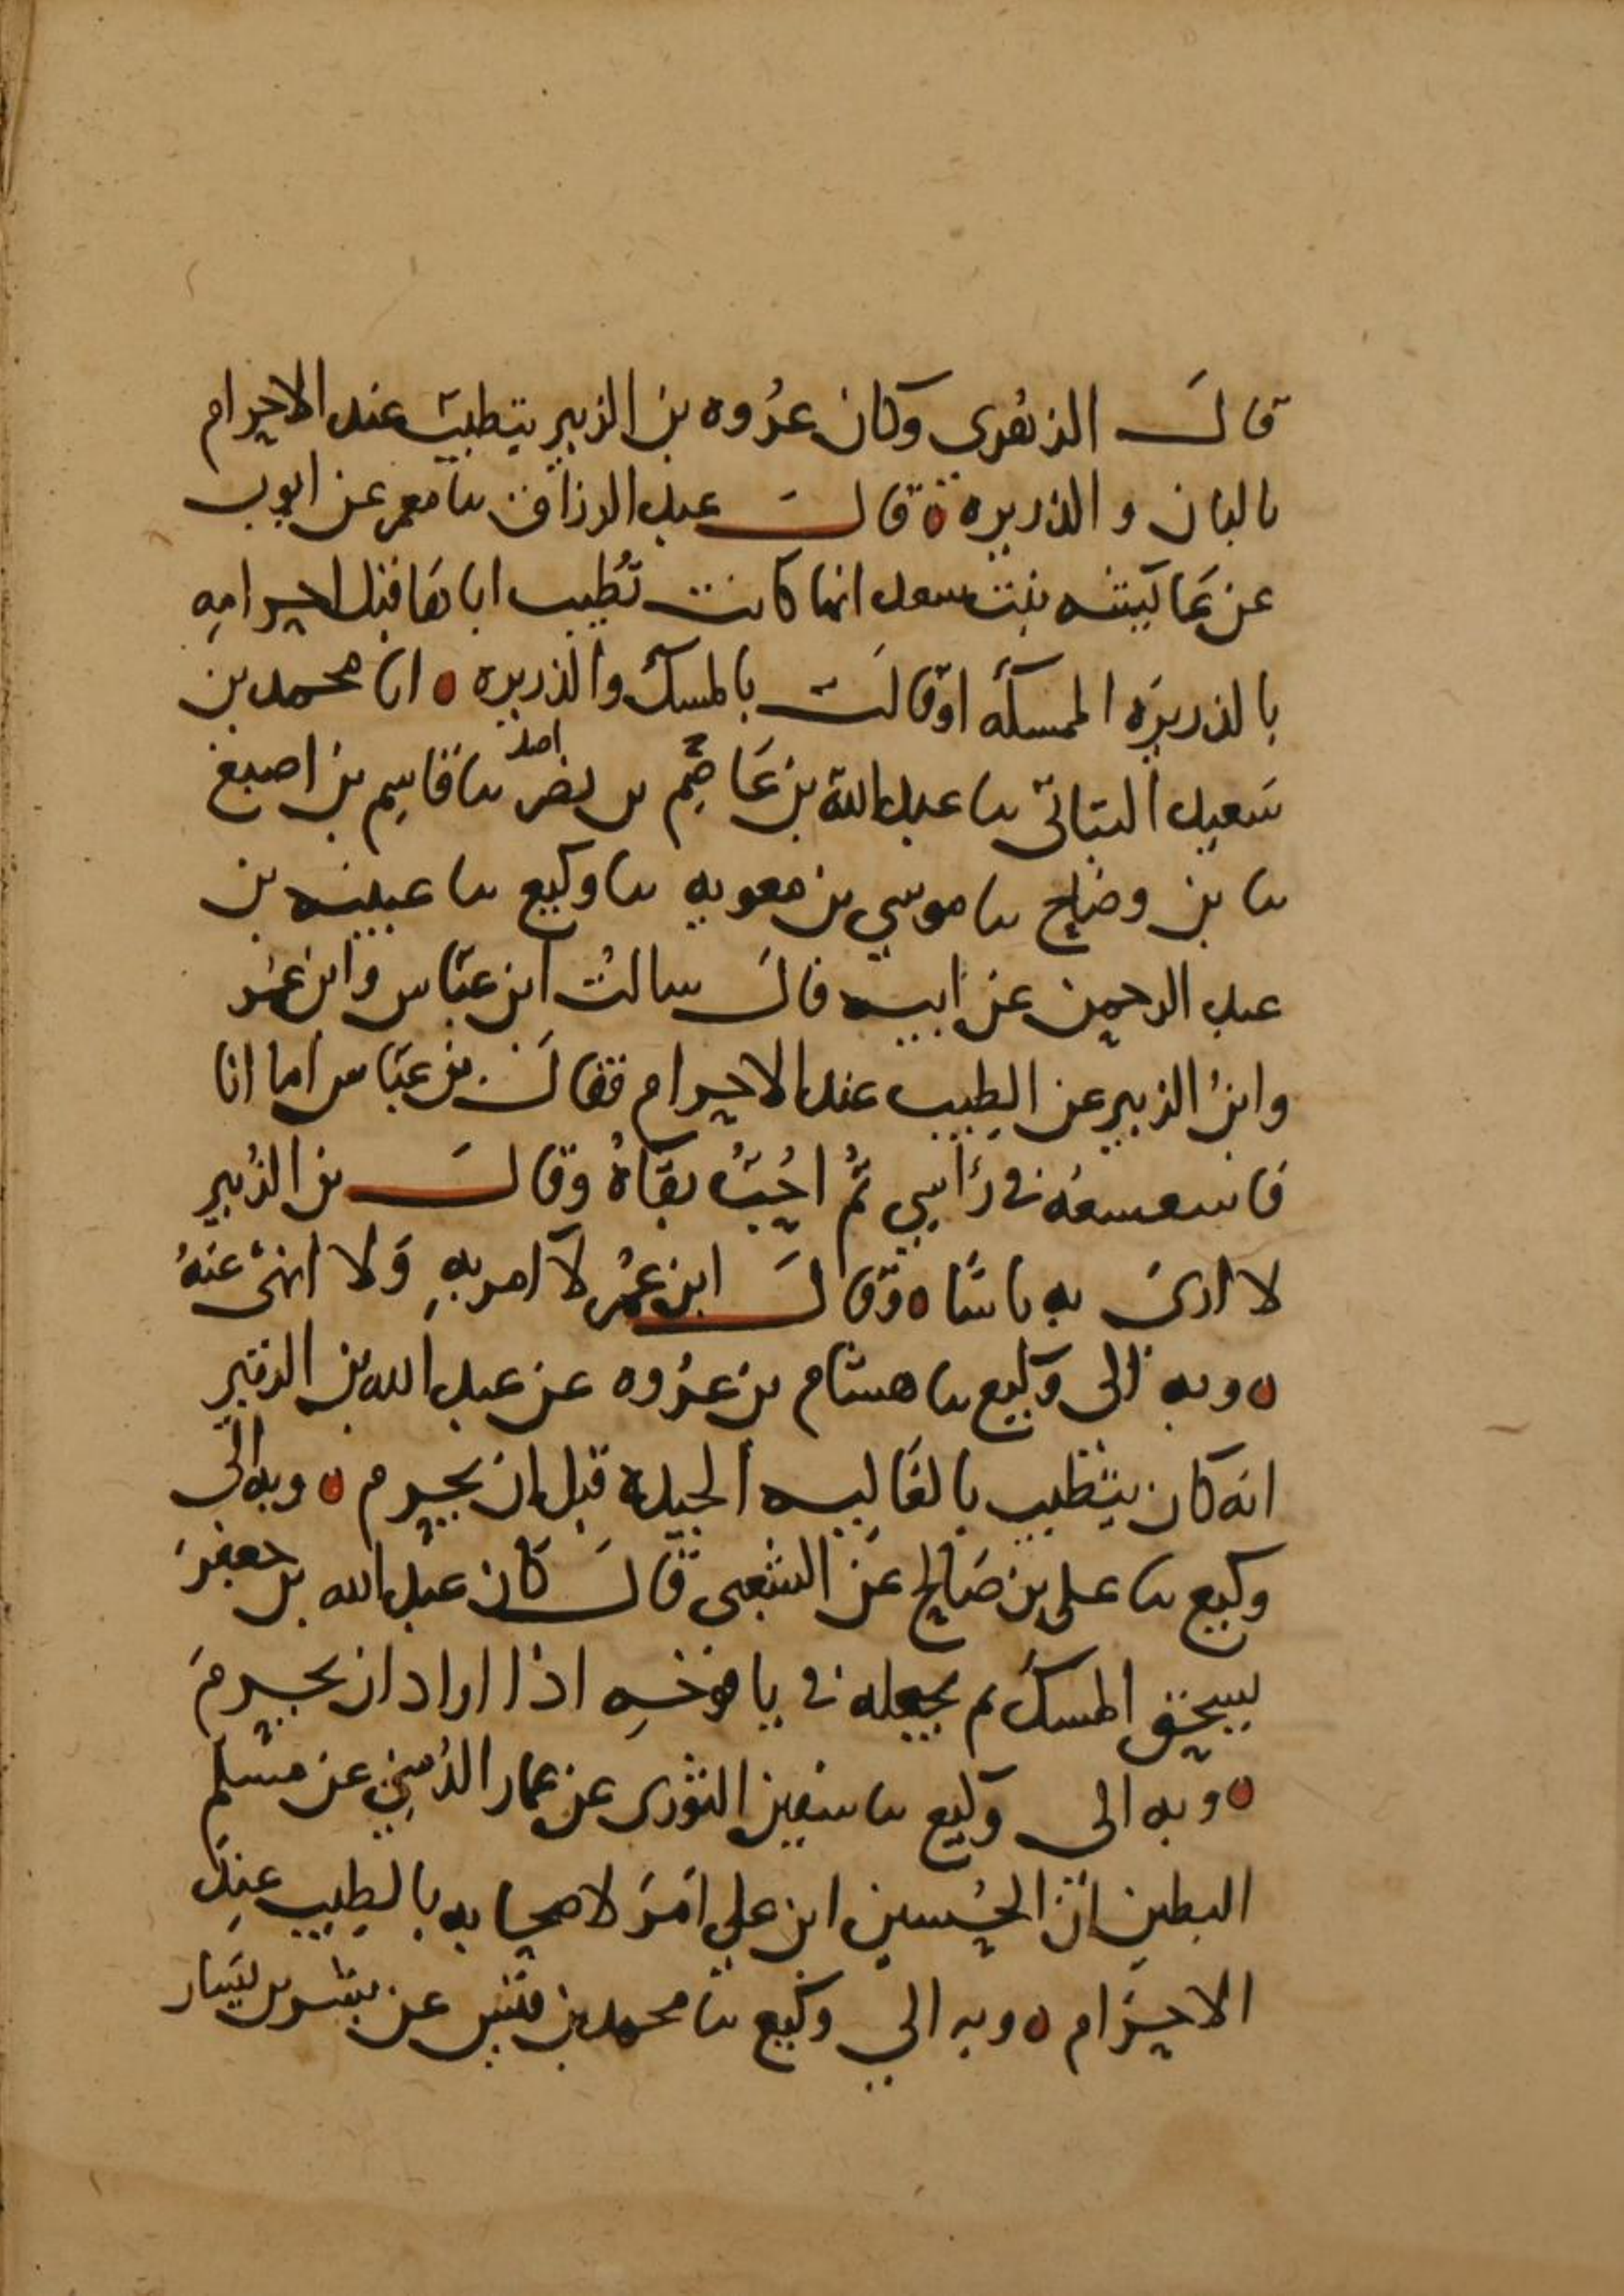 قال الزهري وكان عروه بن الزبير يتطيب عند الاحرام
بالبان والذريره ه قال عبد الرزاق نا معمر عن ايوب
عن عائيشه بنت سعد انها كانت تُطيب اباها قبل احرامهِ
بالذريرَه الممسكه او قالت بالمسك والذريره ه انا محمد بن
سَعيد النباتي نا عبد الله بن عَاصِم بن نصر نا قاسِم بن اصبغ
نا بن وضاح نا موسي بن معويه نا وكيع نا عيينه بن
عبد الرحمن عن ابيه قال سالتُ ابن عبّاس وابن عمر
وابنُ الزبير عن الطيب عند الاحرام فقال بن عبّاس اما انا
فاسعسعُه في رأسي ثُم احُبّ بقآهُ وقال بن الزُبير
لا ارىَ به باسًا ه وقال ابن عُمر لا آمر بهِ وَلا انهى عَنهُ
ه وبه الى وكيع نا هشام بن عُروه عن عبد الله بن الزبير
انه كان يتطيب بالغاليه الجيدة قبل ان يحرم ه وبه الى
وكيع نا على بن صَالح عن الشعبى قال كان عبد الله بن جعفر
يسحق المسك ثم يجعله في يافوخِه اذا اراد ان يحرمَ
ه وبه الى وكيع نا سفين الثورى عن عمار الدُهني عن مسلم
البطين ان الحُسين ابن علي امَرَ لاصحابه بالطيب عِندَ
الاحرَام ه وبه الي وكيع نا محمد بن قيس عن بشير بن يَسار